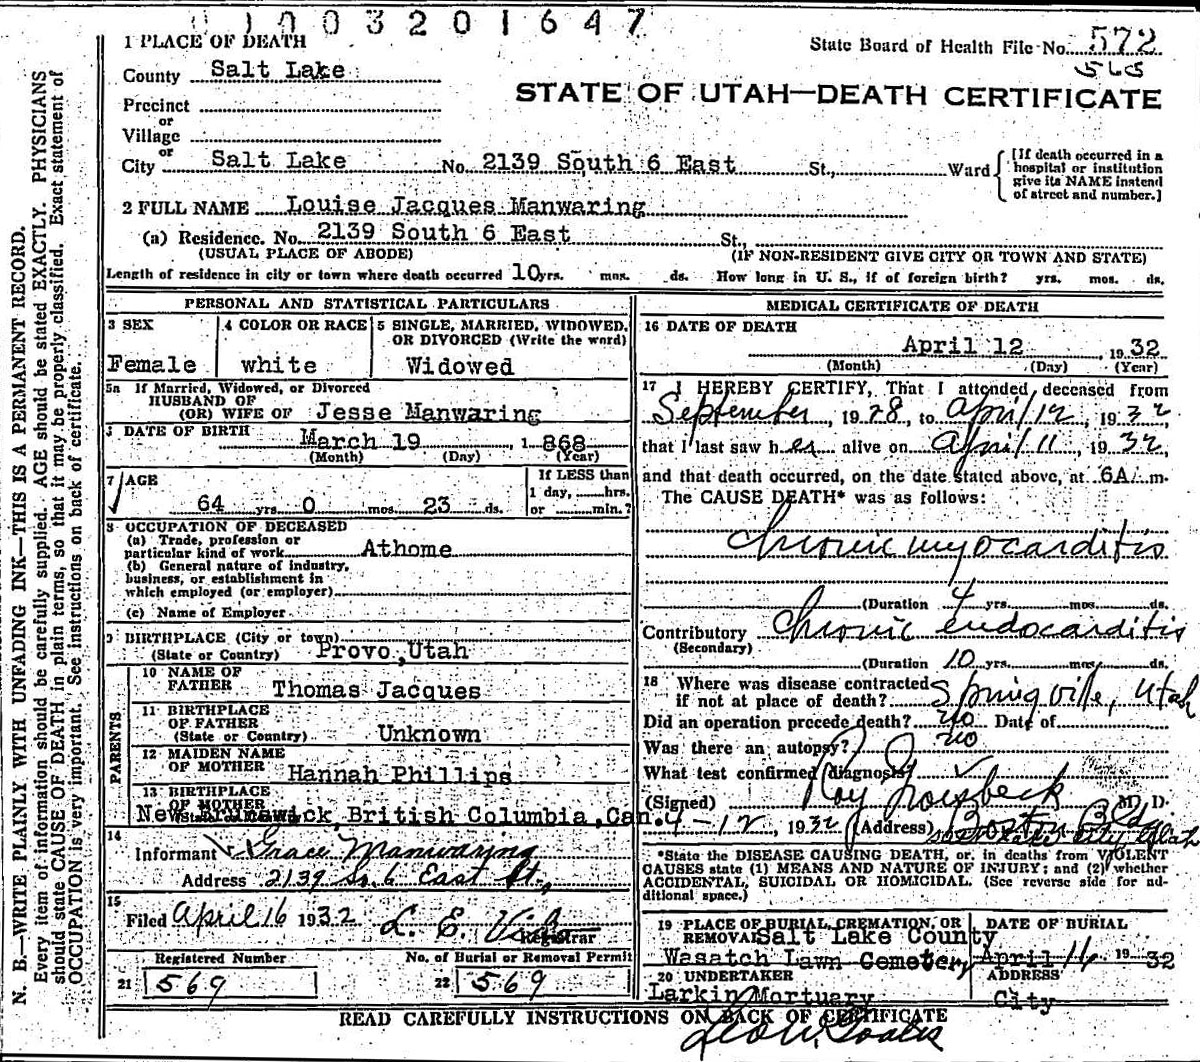 01003201647
1 PLACE OF DEATH
State Board of Health File No. 572
565
County Salt Lake
STATE OF UTAH—DEATH CERTIFICATE
Precinct
or
Village
or
City Salt Lake No. 2139 South 6 East St., Ward
[If death occurred in a hospital or institution give its NAME instead of street and number.]
2 FULL NAME Louise Jacques Manwaring
(a) Residence. No. 2139 South 6 East St.,
(USUAL PLACE OF ABODE) (IF NON-RESIDENT GIVE CITY OR TOWN AND STATE)
Length of residence in city or town where death occurred 10 yrs. mos. ds. How long in U. S., if of foreign birth? yrs. mos. ds.
PERSONAL AND STATISTICAL PARTICULARS
3 SEX 4 COLOR OR RACE 5 SINGLE, MARRIED, WIDOWED,
OR DIVORCED (Write the word)
Female white Widowed
5a If Married, Widowed, or Divorced
HUSBAND OF
(OR) WIFE OF Jesse Manwaring
DATE OF BIRTH March 19 1 868
(Month) (Day) (Year)
7 AGE If LESS than
1 day, hrs.
64 yrs. 0 mos. 23 ds. or min.?
8 OCCUPATION OF DECEASED
(a) Trade, profession or
particular kind of work Athome
(b) General nature of industry,
business, or establishment in
which employed (or employer)
(c) Name of Employer
9 BIRTHPLACE (City or town)
(State or Country) Provo,Utah
PARENTS
10 NAME OF
FATHER Thomas Jacques
11 BIRTHPLACE
OF FATHER
(State or Country) Unknown
12 MAIDEN NAME
OF MOTHER Hannah Phillips
13 BIRTHPLACE
OF MOTHER
New Brunswick,British Columbia,Can.
14
Informant Grace Manwaring
Address 2139 So. 6 East St.,
15
Filed April 16 1932 L. E.
Registrar
Registered Number No. of Burial or Removal Permit
21 569 22 569
MEDICAL CERTIFICATE OF DEATH
16 DATE OF DEATH
April 12 , 1932
(Month) (Day) (Year)
17 I HEREBY CERTIFY, That I attended deceased from
September, 1928, to April 12, 1932
that I last saw her alive on April 11, 1932,
and that death occurred, on the date stated above, at 6A. m.
The CAUSE DEATH* was as follows:
Chronic myocarditis
(Duration 4 yrs. mos. ds.
Contributory Chronic endocarditis
(Secondary)
(Duration 10 yrs. mos. ds.
18 Where was disease contracted
if not at place of death? Springville, Utah
Did an operation precede death? no Date of
Was there an autopsy? no
What test confirmed diagnosis?
(Signed) Roy Groesbeck M. D.
4-12, 1932 (Address) Boston Bldg
Salt Lake City Utah
*State the DISEASE CAUSING DEATH, or, in deaths from VIOLENT
CAUSES state (1) MEANS AND NATURE OF INJURY; and (2) whether
ACCIDENTAL, SUICIDAL OR HOMICIDAL. (See reverse side for ad-
ditional space.)
19 PLACE OF BURIAL, CREMATION, OR DATE OF BURIAL
REMOVAL Salt Lake County
Wasatch Lawn Cemetery April 16 1932
20 UNDERTAKER ADDRESS
Larkin Mortuary City
READ CAREFULLY INSTRUCTIONS ON BACK OF CERTIFICATE
N. B.—WRITE PLAINLY WITH UNFADING INK—THIS IS A PERMANENT RECORD.
Every item of information should be carefully supplied. AGE should be stated EXACTLY. PHYSICIANS
should state CAUSE OF DEATH in plain terms, so that it may be properly classified. Exact statement of
OCCUPATION is very important. See instructions on back of certificate.